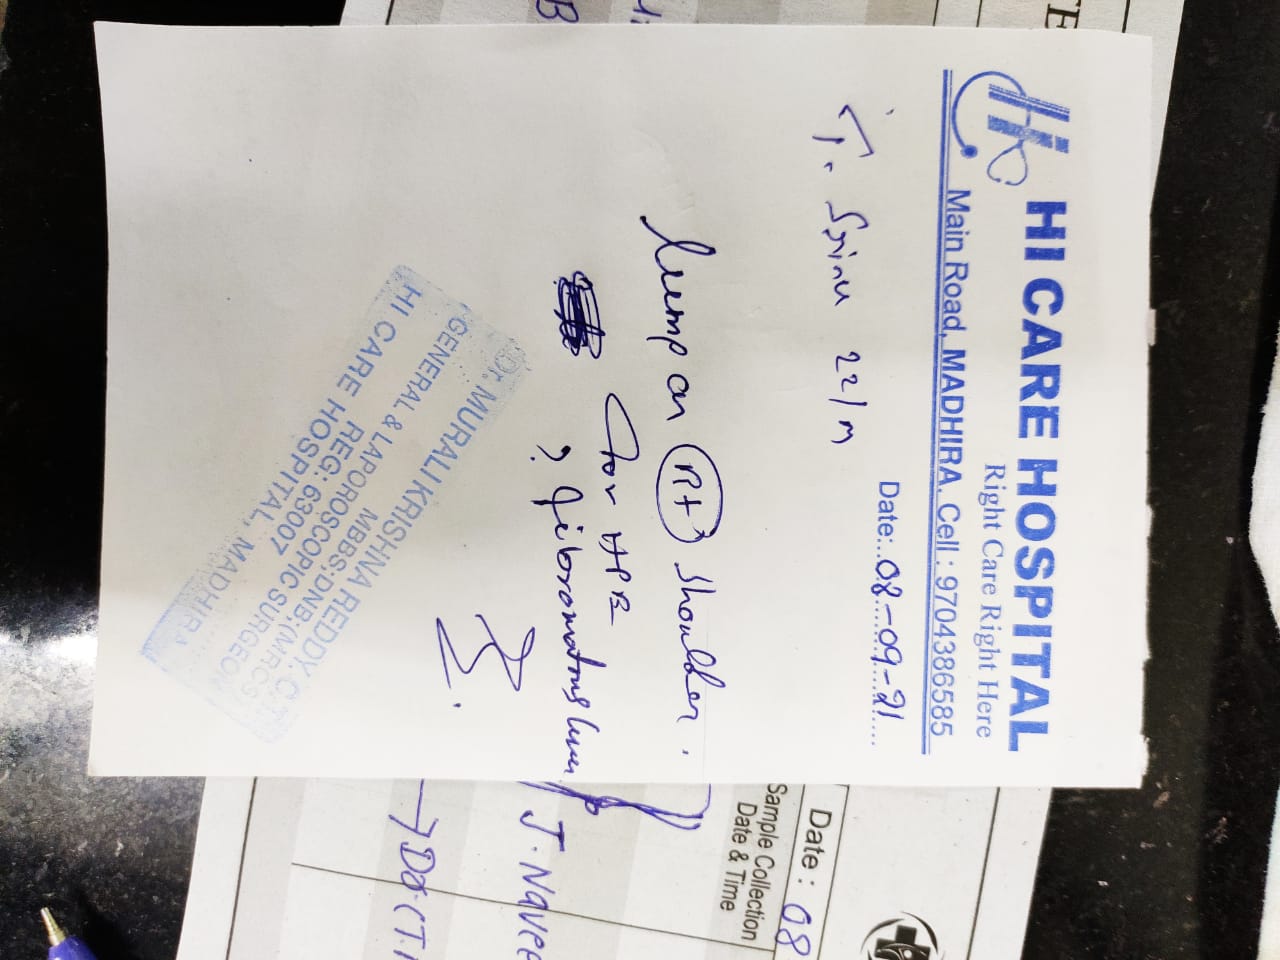 HI CARE HOSPITAL
Right Care Right Here
Main Road, MADHIRA. Cell : 9704386585
Date:..08-09-21....
T. Srinu 22/m
Lump on Rt shoulder.
for HPE
? fibromatous lump
Dr. MURALI KRISHNA REDDY. C
MBBS;DNB;(MRCS
GENERAL & LAPOROSCOPIC SURGEON
REG: 63007
HI CARE HOSPITAL, MADHIRA
Date : 08
Sample Collection
Date & Time
J. Navee